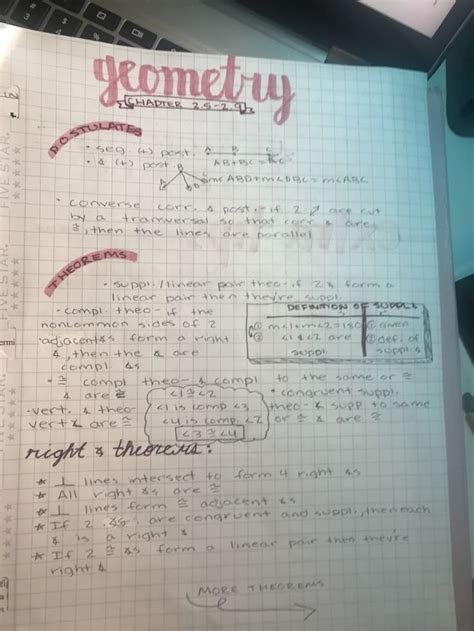 geometry
CHAPTER 2.5-2.9
POSTULATES
• seg. (+) post. A B C
AB+BC=AC
• ∡ (+) post. B
A D C
m∡ABD+m∠DBC=m∠ABC
• converse corr. ∡ post.- if 2 are cut
by a tranversal so that corr ∡ are
≅, then the lines are parallel
THEOREMS
• suppl./linear pair theo- if 2 ∡s form a
linear pair then they're suppl.
• compl. theo- if the
noncommon sides of 2
adjacent ∡s form a right
∡, then the ∡ are
compl ∡s
DEFINITION OF SUPPL ∡
① m<1+m<2=180 ① given
② <1 & <2 are ② def. of
suppl. suppl ∡s
• ≅ compl theo- ∡ compl to the same or ≅
∡ are ≅
• vert. ∡ theo-
vert ∡ are ≅
<1≅<2
<1 is comp <3
<4 is comp. <2
<3≅<4
• congruent suppl.
theo- ∡ supp to same
or ≅ ∡ are ≅
right ∡ theorems:
* ⊥ lines intersect to form 4 right ∡s
* All right ∡s are ≅
* ⊥ lines form ≅ adjacent ∡s
* If 2 ∡s are congruent and suppl, then each
∡ is a right ∡
* If 2 ≅ ∡s form a linear pair then they're
right ∡
MORE THEOREMS
FIVE STAR.
FIVE STAR.